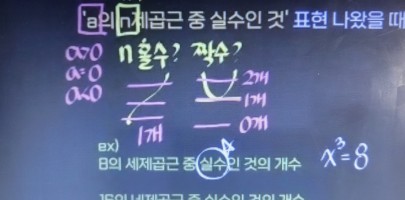 'a의 n제곱근 중 실수인 것' 표현 나왔을 때
a>0 n 홀수? 짝수?
a=0 2개
a<0 1개
1개 0개
ex)
8의 세제곱근 중 실수인 것의 개수 x³=8
16의 네제곱근 중 실수인 것의 개수